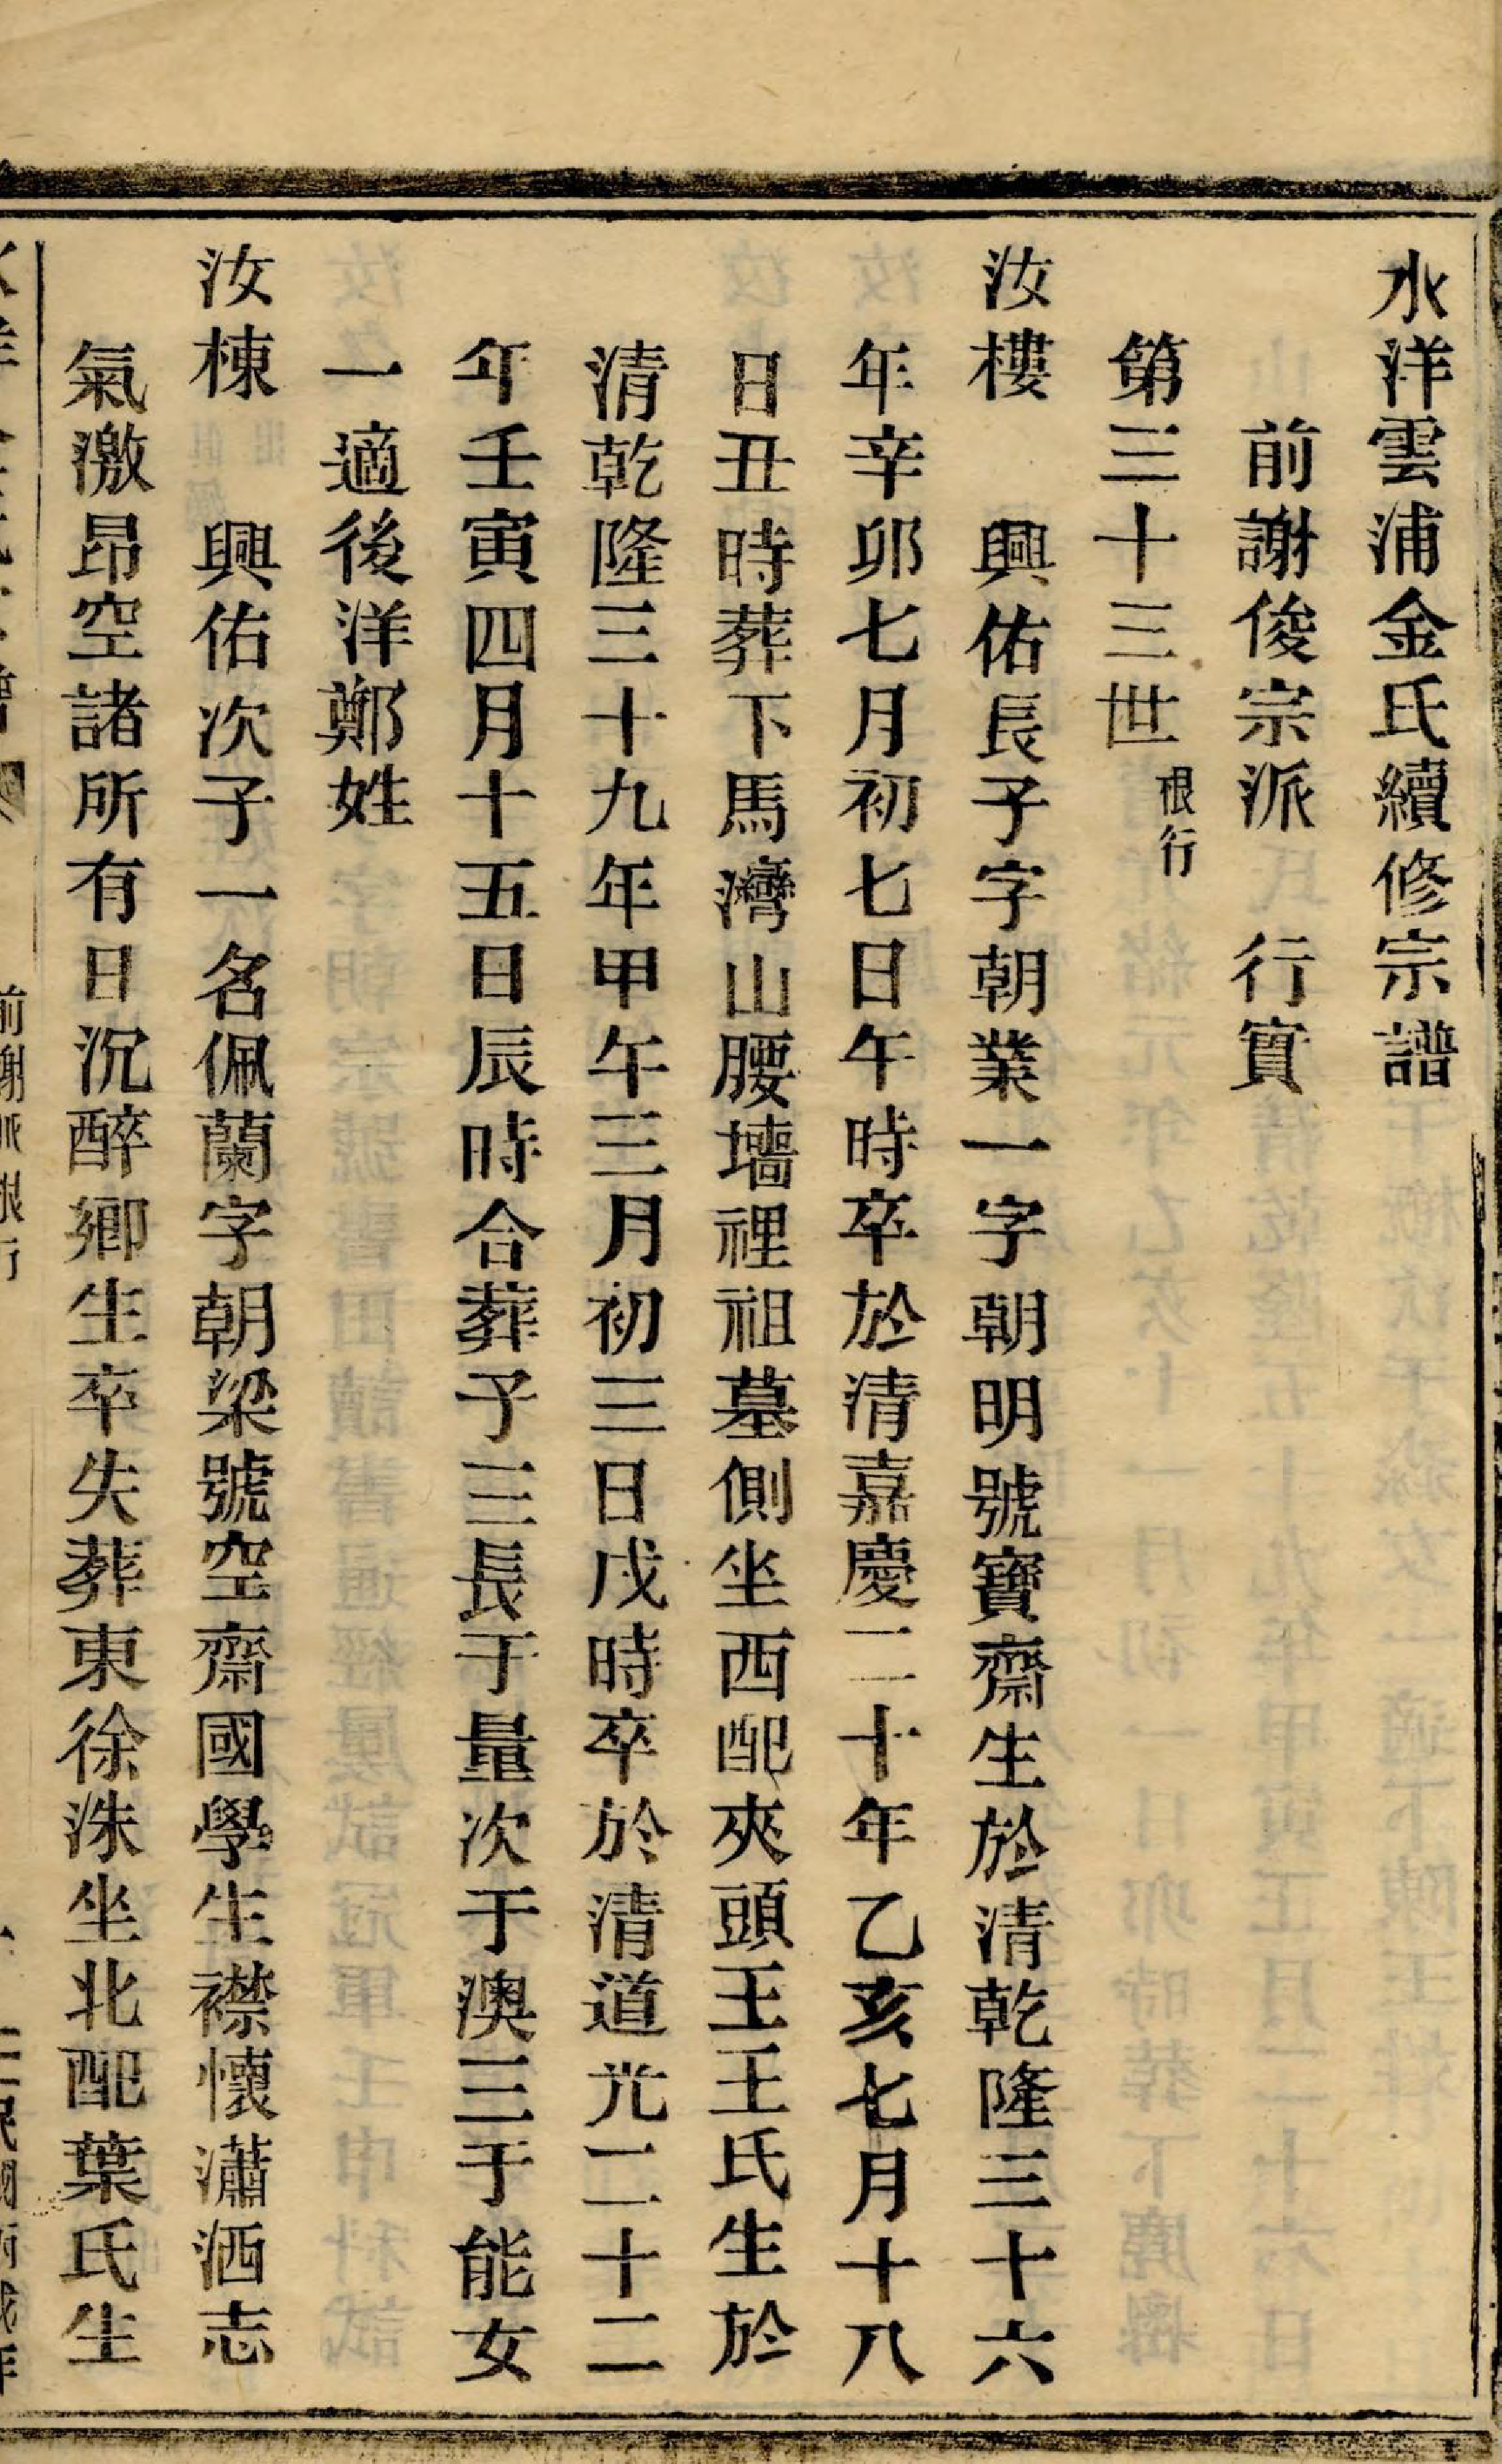 水洋雲浦金氏續修宗譜
前謝俊宗派 行實
第三十三世 根行
汝樓 興佑長子字朝業一字朝明號寶齋生於清乾隆三十六
年辛卯七月初七日午時卒於清嘉慶二十年乙亥七月十八
日丑時葬下馬灣山腰墻裡祖墓側坐西配夾頭王王氏生於
清乾隆三十九年甲午三月初三日戌時卒於清道光二十二
年壬寅四月十五日辰時合葬子三長于量次于澳三于能女
一適後洋鄭姓
汝棟 興佑次子一名佩蘭字朝梁號空齋國學生襟懷瀟洒志
氣激昂空諸所有日沉醉鄉生卒失葬東徐洙坐北配葉氏生
前謝派根行